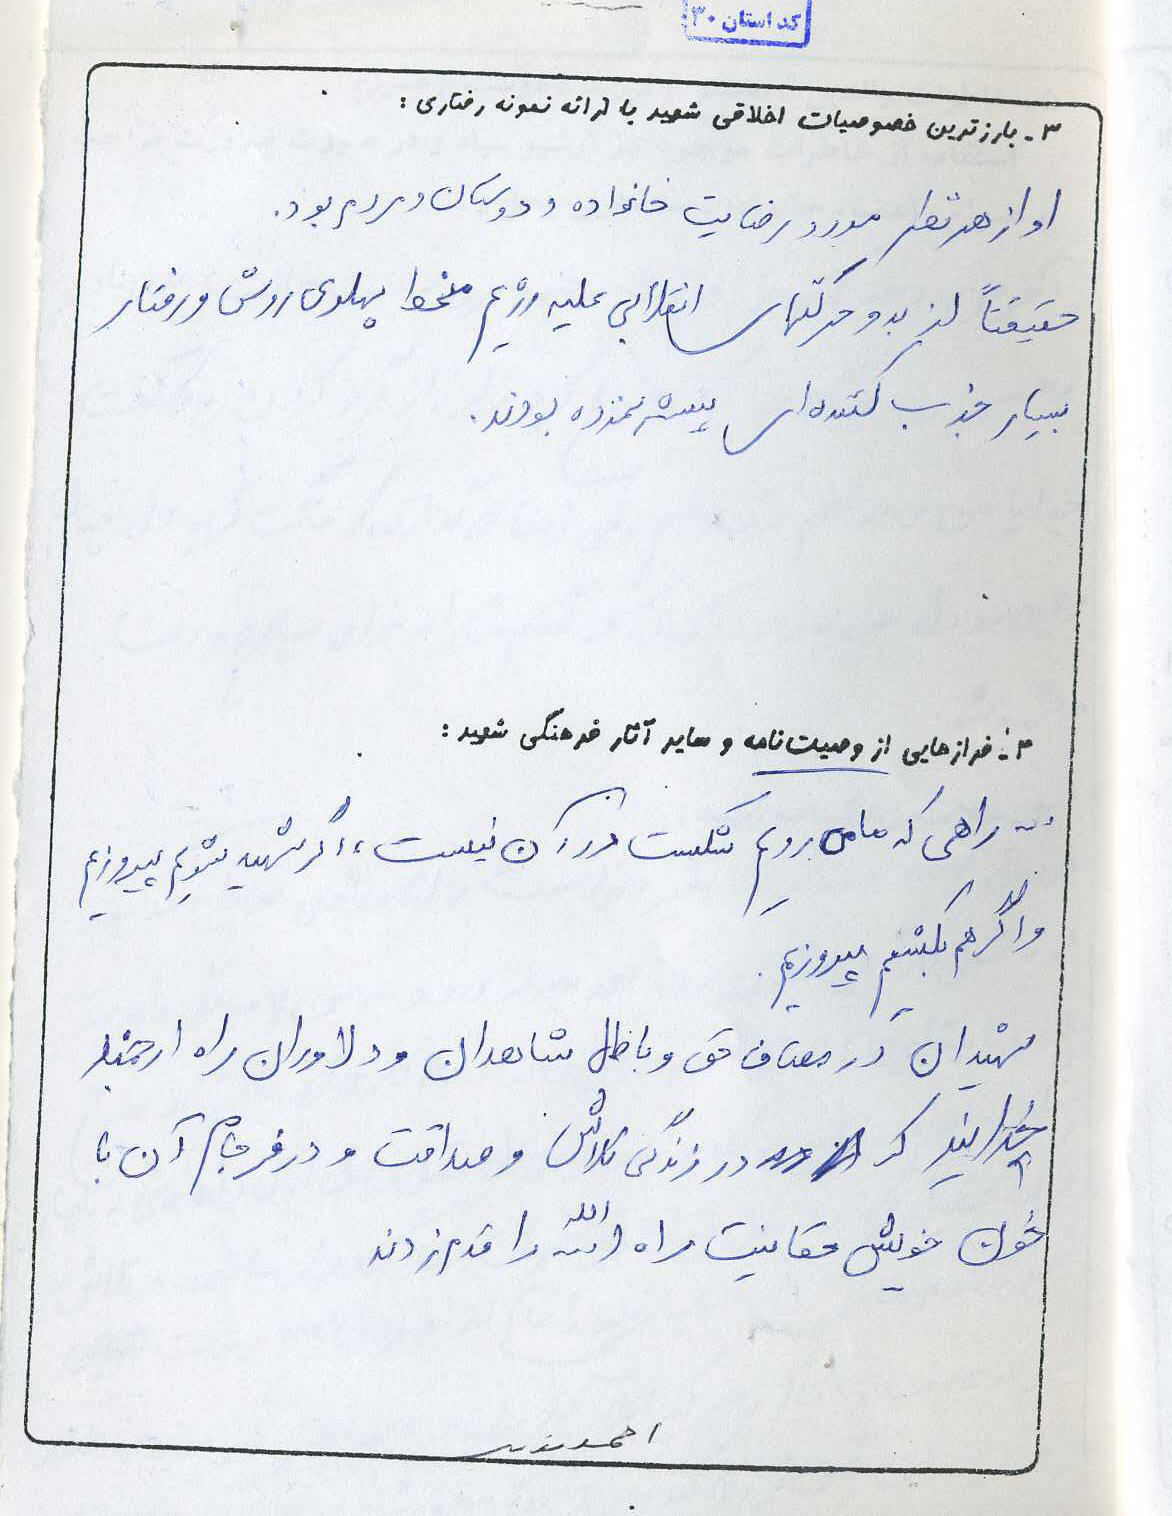 کد استان ۳۰
۳- بارزترین خصوصیات اخلاقی شهید با ارائه نمونه رفتاری :
او از هر نظر مورد رضایت خانواده و دوستان و مردم بود.
حقیقتاً از بدو حرکتهای انقلابی علیه رژیم منحط پهلوی روش و رفتار
بسیار جذب کننده‌ای پیشه نموده بودند.
۴- فرازهایی از وصیت‌نامه و سایر آثار فرهنگی شهید :
راهی که ما می رویم شکست در آن نیست ، اگر شهید شویم پیروزیم
و اگر هم بکشیم پیروزیم .
شهیدان در مصاف حق و باطل شاهدان و دلاوران راه ارجمند
خدایند که در زندگی تلاش و صداقت و در فرجام آن با
خون خویش حقانیت راه الله را قدم زدند